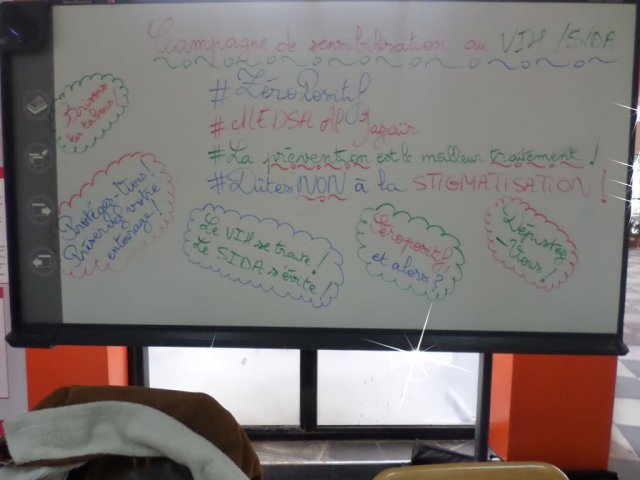 Campagne de sensibilisation au VIH/SIDA
#ZéroPositif
#MEDSA Al Jazair
#La prévention est le meilleur traitement !
#Dîtes NON à la STIGMATISATION !
Brisons
les tabous !
Protégez-Vous !
Préservez votre
entourage !
Le VIH se traite !
Le SIDA s'évite !
Séropositif,
et alors ?
Dépistez
-Vous !